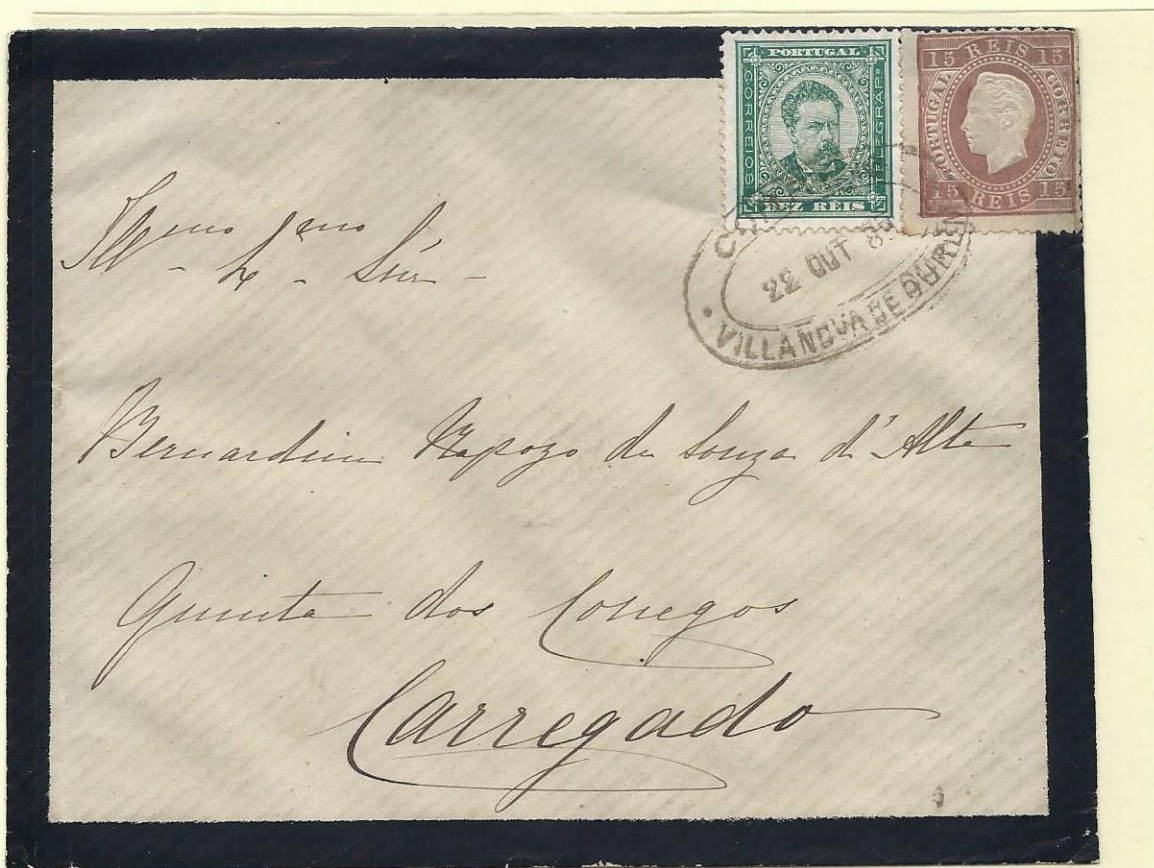 PORTUGAL
CORREIOS
TELEGRAPº
DEZ REIS
15 REIS 15
PORTUGAL
CORREIO
15 REIS 15
22 OUT 8
VILLA NOVA DE OUREM
Illmo Exmo
Snr
Bernardino Rapozo de Souza d'Alte
Quinta dos Conegos
Carregado